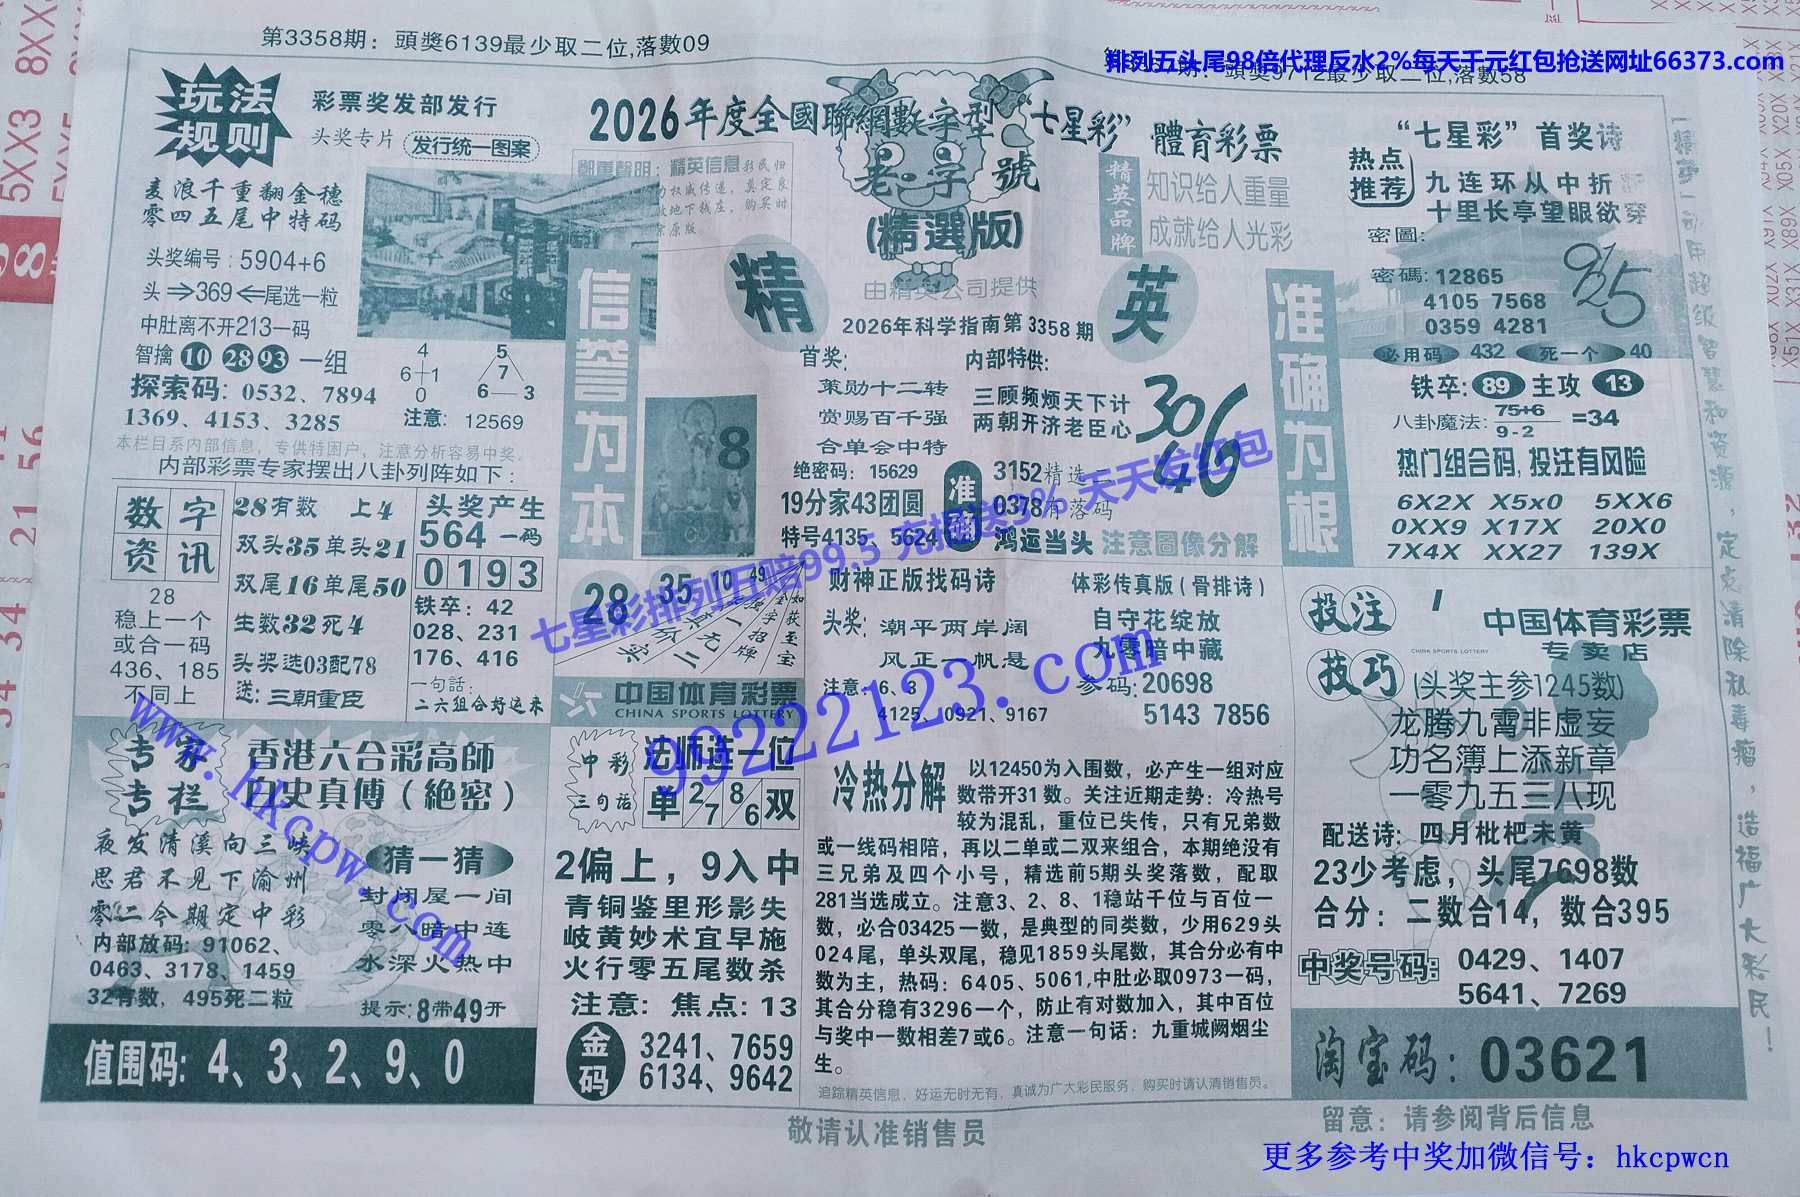 第3358期：頭獎6139最少取二位,落數09
排列五头尾98倍代理反水2%每天千元红包抢送网址66373.com
期：頭獎9712最少取二位,落數58
玩法
规则
彩票奖发部发行
头奖专片
发行统一图案
麦浪千重翻金穗
零四五尾中特码
头奖编号：5904+6
头⇒369⇐尾选一粒
中肚离不开213一码
智擒 10 28 93 一组
探索码：0532、7894
1369、4153、3285
4
6+1
0
5
7
6 3
注意：12569
本栏目系内部信息，专供特困户，注意分析容易中奖。
内部彩票专家摆出八卦列阵如下：
2026年度全國聯網數字型“七星彩”體育彩票
鄭重聲明：精英信息
老字號
(精選版)
精英品牌
知识给人重量
成就给人光彩
精
英
由精英公司提供
2026年科学指南第3358期
信誉为本
准确为根
8
首奖：
策勋十二转
赏赐百千强
合单会中特
绝密码：15629
19分家43团圆
特号4135、5624
内部特供：
三顾频烦天下计
两朝开济老臣心
306
46
3152精选二
0378有落码
鸿运当头 注意圖像分解
“七星彩”首奖诗
热点
推荐
九连环从中折断
十里长亭望眼欲穿
密圖：
925
密碼：12865
4105 7568
0359 4281
必用码 432 死一个 40
铁卒：89 主攻 13
八卦魔法：75+6
9-2
=34
热门组合码，投注有风险
6X2X X5x0 5XX6
0XX9 X17X 20X0
7X4X XX27 139X
数字
资讯
28
稳上一个
或合一码
436、185
不同上
28有数 上4
双头35单头21
双尾16单尾50
生数32死4
头奖选03配78
送：三朝重臣
头奖产生
564一码
0193
铁卒：42
028、231
176、416
一句話：
二六组合好运来
28 35 10 49
中国体育彩票
CHINA SPORTS LOTTERY
财神正版找码诗
头奖：潮平两岸阔
风正一帆悬
注意：6、3
4125、0921、9167
体彩传真版（骨排诗）
自守花绽放
九零暗中藏
参码：20698
5143 7856
投注
技巧
中国体育彩票
CHINA SPORTS LOTTERY
专卖店
(头奖主参1245数)
龙腾九霄非虚妄
功名簿上添新章
一零九五三八现
配送诗：四月枇杷未黄
23少考虑，头尾7698数
合分：二数合14，数合395
中奖号码：0429、1407
5641、7269
淘宝码：03621
专家
专栏
香港六合彩高師
白史真傅（絶密）
夜发清溪向三峡
思君不见下渝州
零二今期定中彩
内部放码：91062、
0463、3178、1459
32有数，495死二粒
猜一猜
封闭屋一间
零八暗中连
水深火热中
提示：8带49开
值围码：4、3、2、9、0
中彩
三句话
法师选一位
单 2 7 8 6 双
2偏上，9入中
青铜鉴里形影失
岐黄妙术宜早施
火行零五尾数杀
注意：焦点：13
金码
3241、7659
6134、9642
冷热分解
以12450为入围数，必产生一组对应
数带开31数。关注近期走势：冷热号
较为混乱，重位已失传，只有兄弟数
或一线码相陪，再以二单或二双来组合，本期绝没有
三兄弟及四个小号，精选前5期头奖落数，配取
281当选成立。注意3、2、8、1稳站千位与百位一
数，必合03425一数，是典型的同类数，少用629头
024尾，单头双尾，稳见1859头尾数，其合分必有中
数为主，热码：6405、5061,中肚必取0973一码，
其合分稳有3296一个，防止有对数加入，其中百位
与奖中一数相差7或6。注意一句话：九重城阙烟尘
生。
追踪精英信息，好运无时无有，真诚为广大彩民服务，购买时请认清销售员。
敬请认准销售员
留意：请参阅背后信息
七星彩排列五赔99.5 充摇送3% 天天发红包
99222123.com
www.hkcpw.com
更多参考中奖加微信号：hkcpwcn